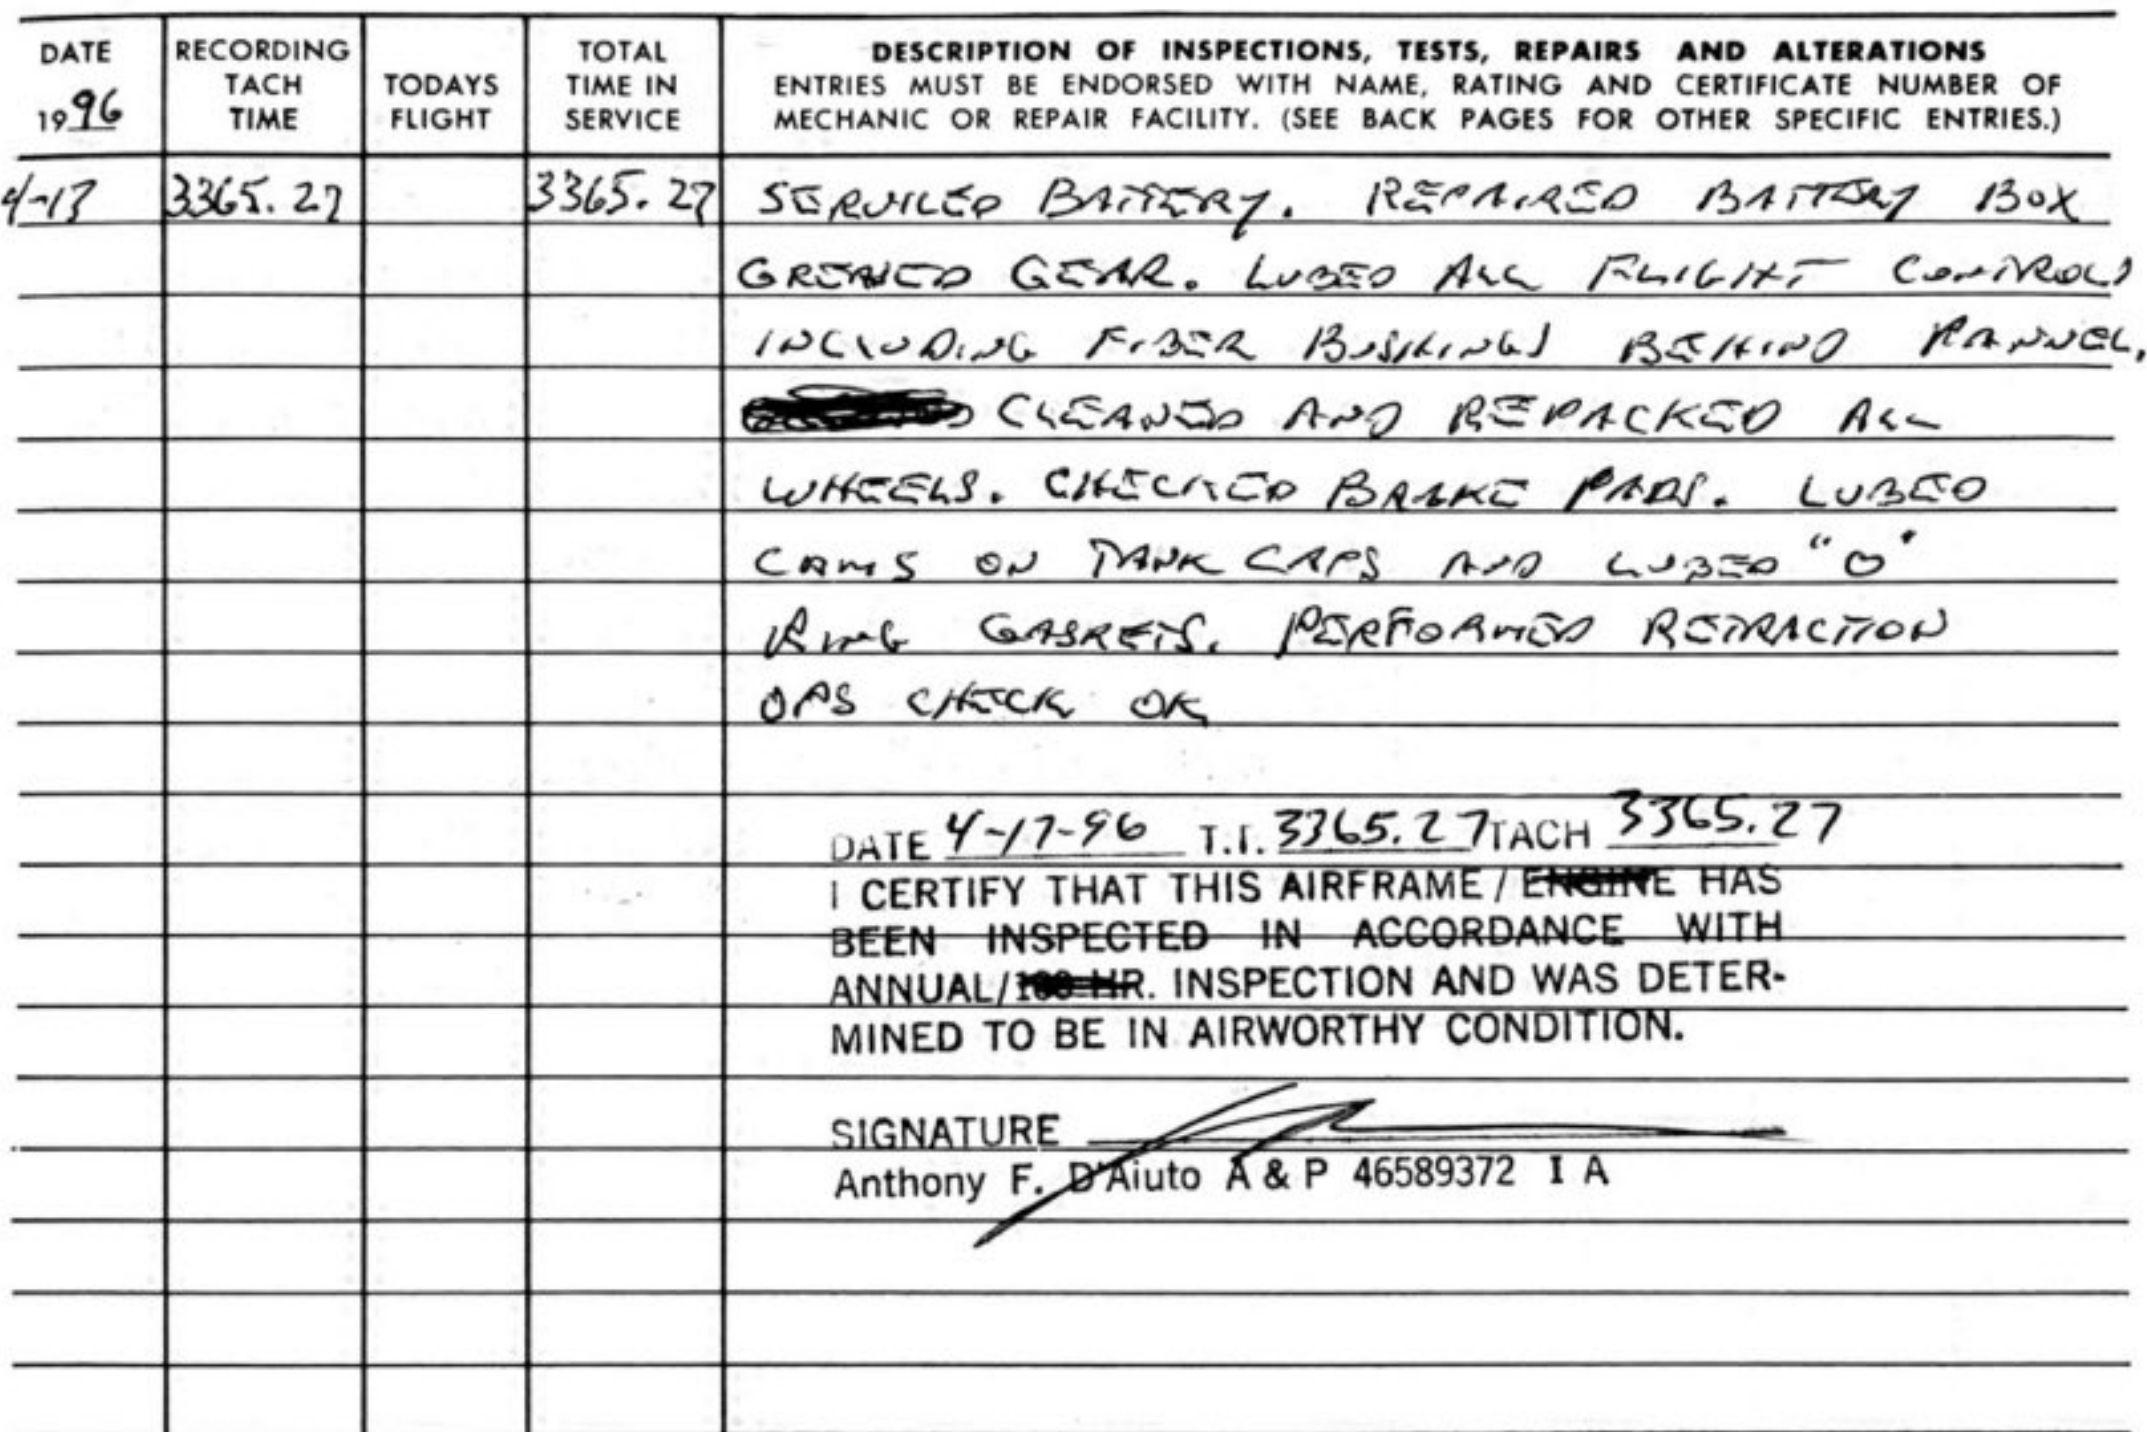 DATE
1996
RECORDING
TACH
TIME
TODAYS
FLIGHT
TOTAL
TIME IN
SERVICE
DESCRIPTION OF INSPECTIONS, TESTS, REPAIRS AND ALTERATIONS
ENTRIES MUST BE ENDORSED WITH NAME, RATING AND CERTIFICATE NUMBER OF
MECHANIC OR REPAIR FACILITY. (SEE BACK PAGES FOR OTHER SPECIFIC ENTRIES.)
4-17 3365.27 3365.27 SERVICED BATTERY. REPAIRED BATTERY BOX
GREASED GEAR. LUBED ALL FLIGHT CONTROLS
INCLUDING FIBER BUSHINGS BEHIND PANNEL.
CLEANED AND REPACKED ALL
WHEELS. CHECKED BRAKE PADS. LUBED
CAMS ON TANK CAPS AND LUBED "O"
RING GASKETS. PERFORMED RETRACTION
OPS CHECK OK
DATE 4-17-96 T.T. 3365.27 TACH 3365.27
I CERTIFY THAT THIS AIRFRAME / ENGINE HAS
BEEN INSPECTED IN ACCORDANCE WITH
ANNUAL/100 HR. INSPECTION AND WAS DETER-
MINED TO BE IN AIRWORTHY CONDITION.
SIGNATURE
Anthony F. D'Aiuto A & P 46589372 I A